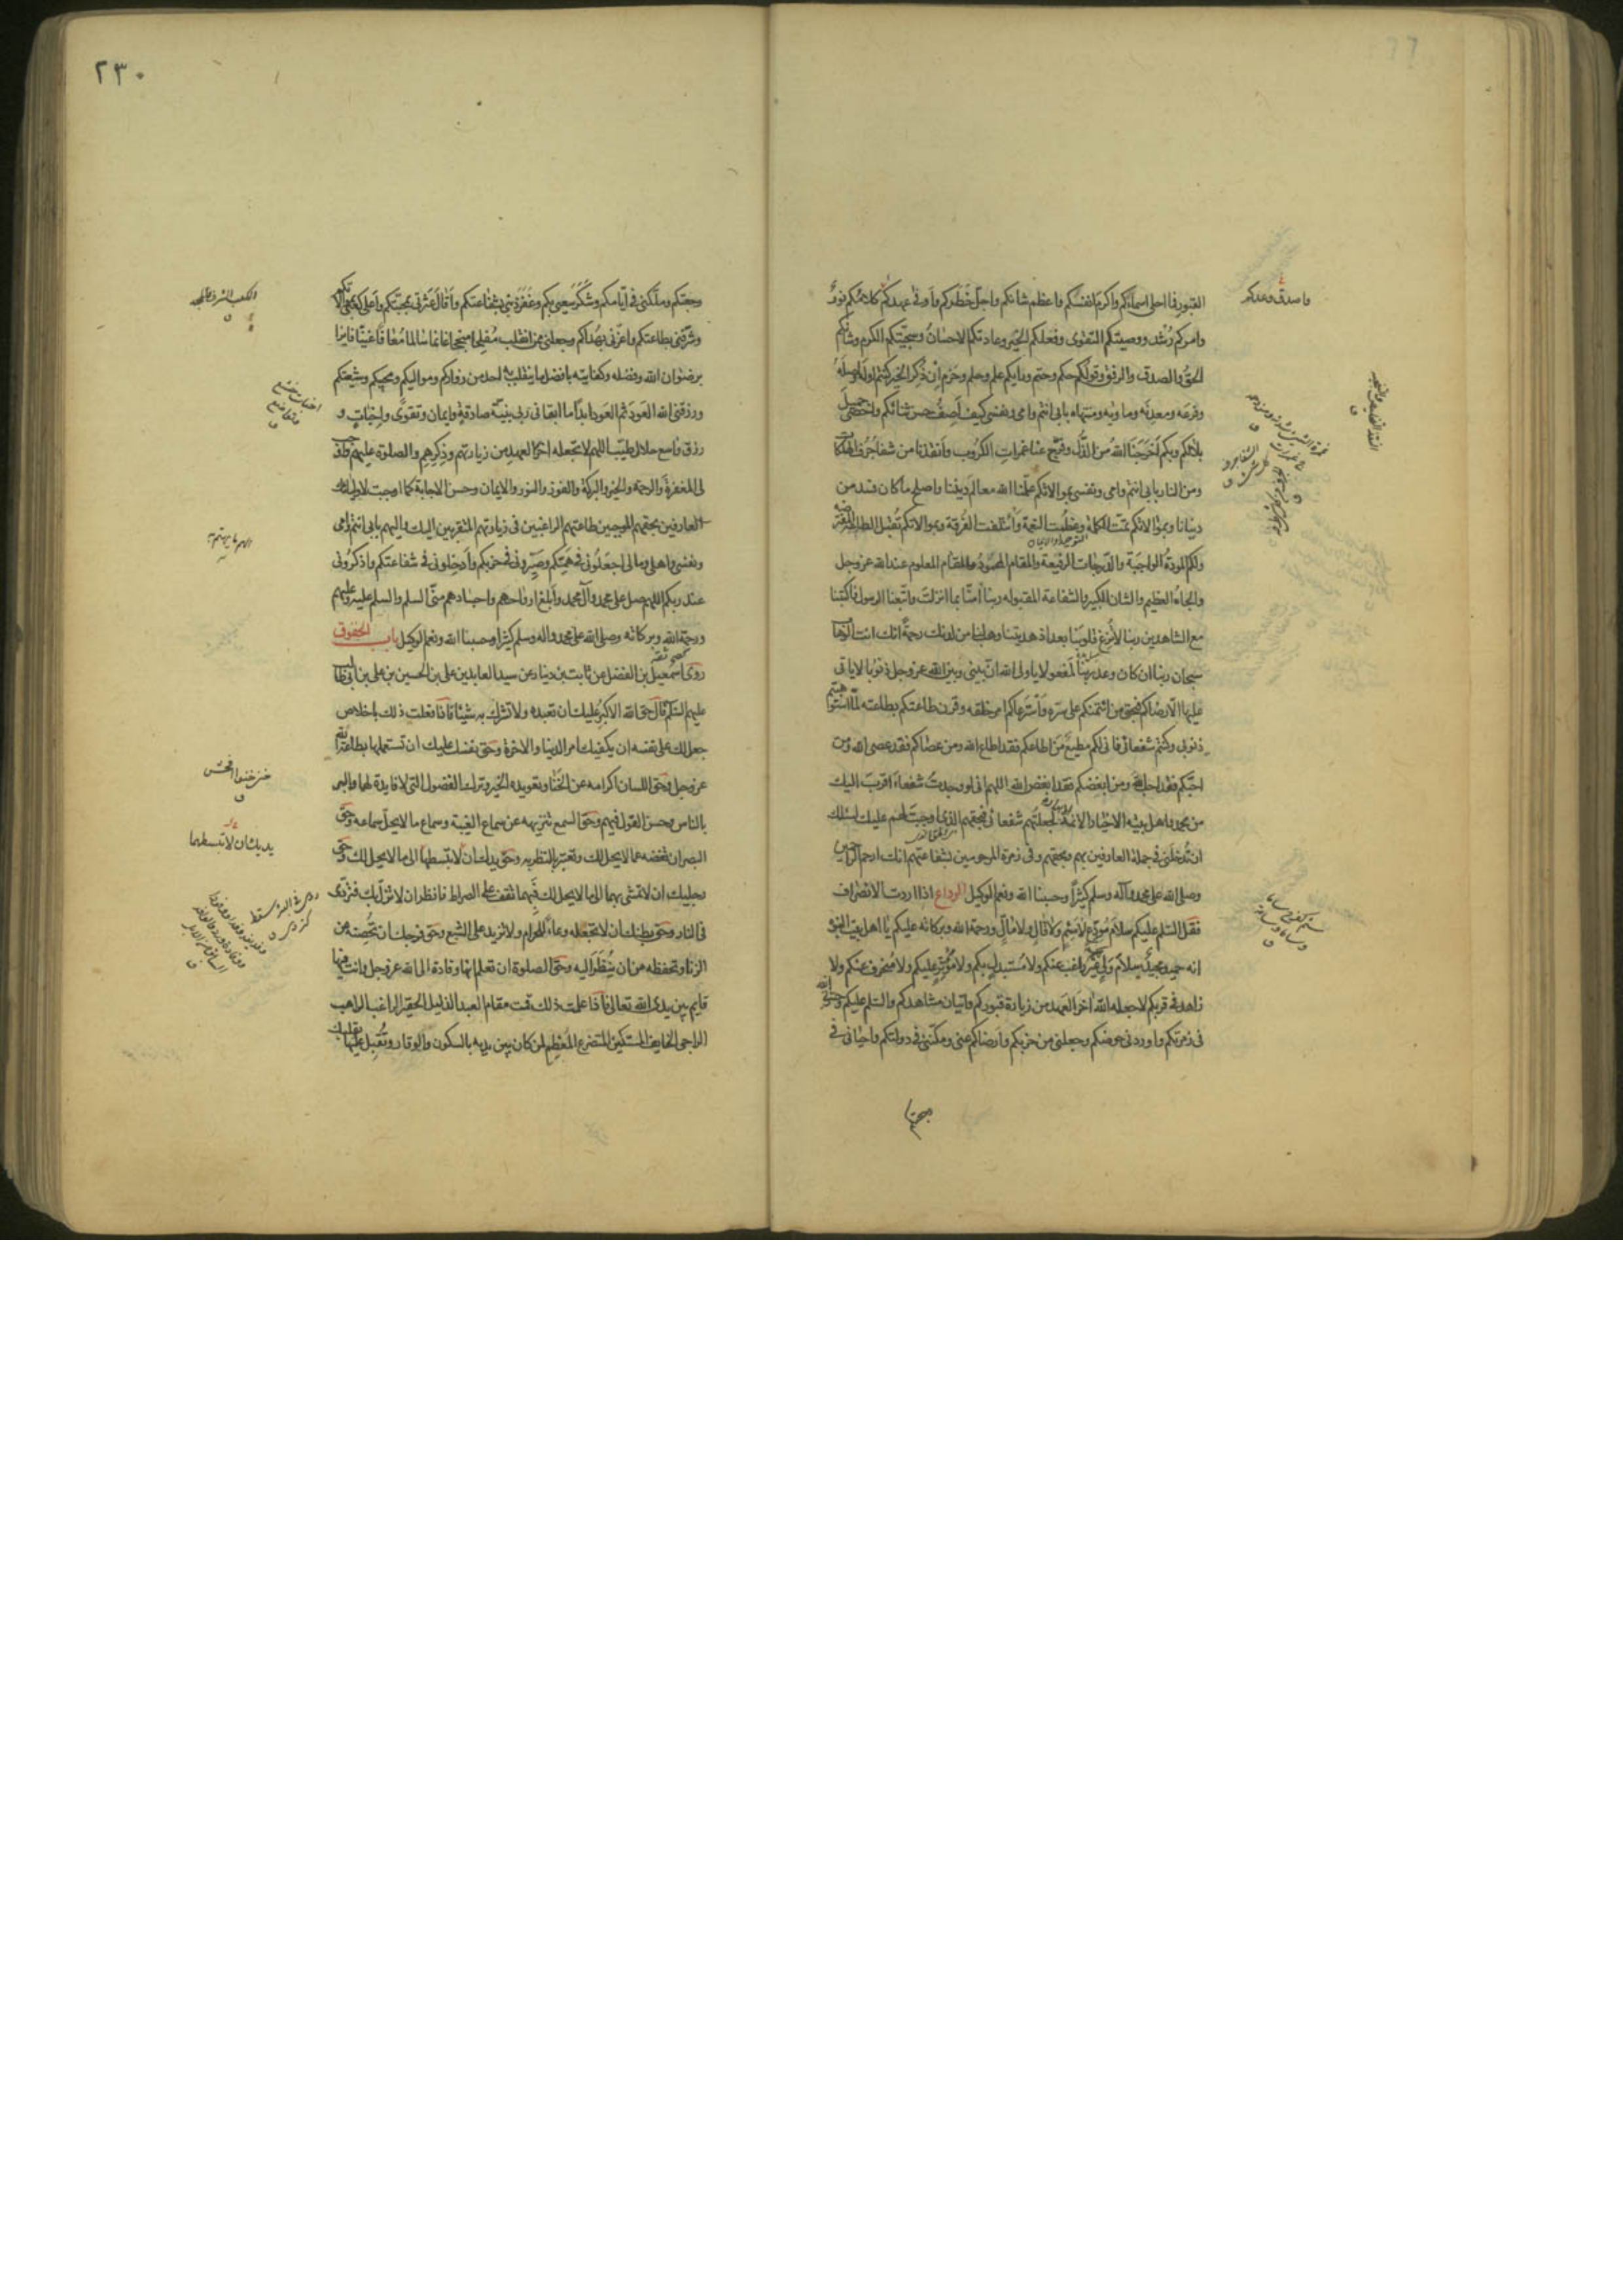 القبور فما احلى اسماءكم واكرم انفسكم واعظم شانكم واجل خطركم واوفى عهدكم كلامكم نور
وامركم رشد ووصيتكم التقوى وفعلكم الخير وعادتكم الاحسان وسجيتكم الكرم وشانكم
الحق والصدق والرفق وقولكم حكم وحتم ورايكم علم وحلم وحزم ان ذكر الخير كنتم اوله واصله
وفرعه ومعدنه وماويه ومنتهاه بابى انتم وامى ونفسى كيف اصف حسن ثنائكم واحصى جميل
بلائكم وبكم اخرجنا الله من الذل وفرج عنا غمرات الكروب وانقذنا من شفا جرف الهلكات
ومن النار بابى انتم وامى ونفسى بموالاتكم علمنا الله معالم ديننا واصلح ما كان فسد من
دنيانا وبموالاتكم تمت الكلمة وعظمت النعمة وائتلفت الفرقة وبموالاتكم تقبل الطاعة المفترضة
ولكم المودة الواجبة والدرجات الرفيعة والمقام المحمود والمقام المعلوم عند الله عز وجل
والجاه العظيم والشان الكبير والشفاعة المقبوله ربنا امنا بما انزلت واتبعنا الرسول فاكتبنا
مع الشاهدين ربنا لا تزغ قلوبنا بعد اذ هديتنا وهب لنا من لدنك رحمة انك انت الوهاب
سبحان ربنا ان كان وعد ربنا لمفعولا يا ولى الله ان بينى وبين الله عز وجل ذنوبا لا ياتى
عليها الا رضاكم فبحق من ائتمنكم على سره واسترعاكم امر خلقه وقرن طاعتكم بطاعته لما استوهبتم
ذنوبى وكنتم شفعائى فانى لكم مطيع من اطاعكم فقد اطاع الله ومن عصاكم فقد عصى الله ومن
احبكم فقد احب الله ومن ابغضكم فقد ابغض الله اللهم انى لو وجدت شفعاء اقرب اليك
من محمد واهل بيته الاخيار الائمة الابرار لجعلتهم شفعائى فبحقهم الذى اوجبت لهم عليك اسئلك
ان تدخلنى فى جملة العارفين بهم وبحقهم وفى زمرة المرحومين بشفاعتهم انك ارحم الراحمين
وصلى الله على محمد وآله وسلم كثيرا وحسبنا الله ونعم الوكيل الوداع اذا اردت الانصراف
فقل السلم عليكم سلام مودع لا سئم ولا قال ولا مال ورحمة الله وبركاته عليكم يا اهل بيت النبوة
انه حميد مجيد سلام ولى غير راغب عنكم ولا مستبدل بكم ولا مؤثر عليكم ولا منحرف عنكم ولا
زاهد فى قربكم لا جعله الله اخر العهد من زيارة قبوركم واتيان مشاهدكم والسلم عليكم وحشرنى الله
فى زمرتكم واوردنى حوضكم وجعلنى من حزبكم وارضاكم عنى ومكننى فى دولتكم واحيانى فى
واصدق وعدكم
٢٣٠
رجعتكم وملكنى فى ايامكم وشكر سعيى بكم وغفر ذنبى بشفاعتكم واقال عثرتى بمحبتكم واعلى كعبى بموالاتكم
وشرفنى بطاعتكم واعزنى بهداكم وجعلنى ممن انقلب مفلحا منجحا غانما سالما معافا غنيا فايزا
برضوان الله وفضله وكفايته بافضل ما ينقلب به احد من زواركم ومواليكم ومحبيكم وشيعتكم
ورزقنى الله العود ثم العود ابدا ما ابقانى ربى بنية صادقة وايمان وتقوى واخبات و
رزق واسع حلال طيب اللهم لا تجعله اخر العهد من زيارتهم وذكرهم والصلوة عليهم واوجب
لى المغفرة والرحمة والخير والبركة والفوز والنور والايمان وحسن الاجابة كما اوجبت لاوليائك
العارفين بحقهم الموجبين طاعتهم الراغبين فى زيارتهم المتقربين اليك واليهم بابى انتم وامى
ونفسى واهلى ومالى اجعلونى فى همكم وصيرونى فى حزبكم وادخلونى فى شفاعتكم واذكرونى
عند ربكم اللهم صل على محمد وآل محمد وابلغ ارواحهم واجسادهم منى السلم والسلم عليه وعليهم
ورحمة الله وبركاته وصلى الله على محمد واله وسلم كثيرا وحسبنا الله ونعم الوكيل باب الحقوق
روى اسمعيل بن الفضل عن ثابت بن دينار عن سيد العابدين على بن الحسين بن على بن ابى طالب
عليهم السلم قال حق الله الاكبر عليك ان تعبده ولا تشرك به شيئا فاذا فعلت ذلك باخلاص
جعل لك على نفسه ان يكفيك امر الدنيا والاخرة وحق نفسك عليك ان تستعملها بطاعة الله
عز وجل وحق اللسان اكرامه عن الخنا وتعويده الخير وترك الفضول التى لا فايدة لها والبر
بالناس وحسن القول فيهم وحق السمع تنزيهه عن سماع الغيبة وسماع ما لا يحل سماعه وحق
البصر ان تغضه عما لا يحل لك وتعتبر بالنظر به وحق يدك ان لا تبسطها الى ما لا يحل لك وحق
رجليك ان لا تمشى بهما الى ما لا يحل لك فبهما تقف على الصراط فانظر ان لا تزل بك فتردى
فى النار وحق بطنك ان لا تجعله وعاء للحرام ولا تزيد على الشبع وحق فرجك ان تحصنه عن
الزنا وتحفظه من ان ينظر اليه وحق الصلوة ان تعلم انها وفادة الى الله عز وجل وانت فيها
قايم بين يدى الله تعالى فاذا علمت ذلك قمت مقام العبد الذليل الحقير الراغب الراهب
الراجى الخايف المستكين المتضرع المعظم لمن كان بين يديه بالسكون والوقار وتقبل عليها بقلبك
يديك ان لا تبسطهما